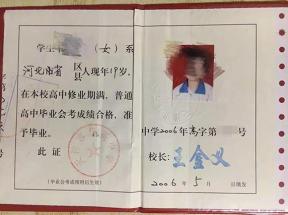 学生
(女) 系
河北 省
区
县
人现年19岁，
在本校高中修业期满，普通
高中毕业会考成绩合格，准
予毕业。
此证
(毕业会考成绩附后生效)
中学2006年高字第
号
校长：王金义
2006年5月
日填发